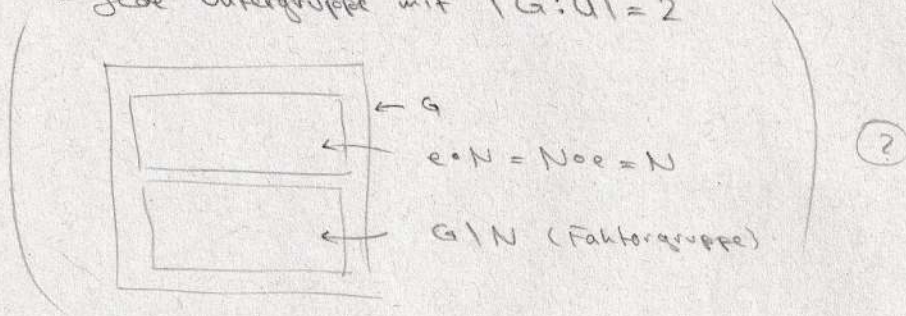 Jede Untergruppe mit |G:U| = 2
← G
e∘N = N∘e = N
?
G\N (Faktorgruppe)